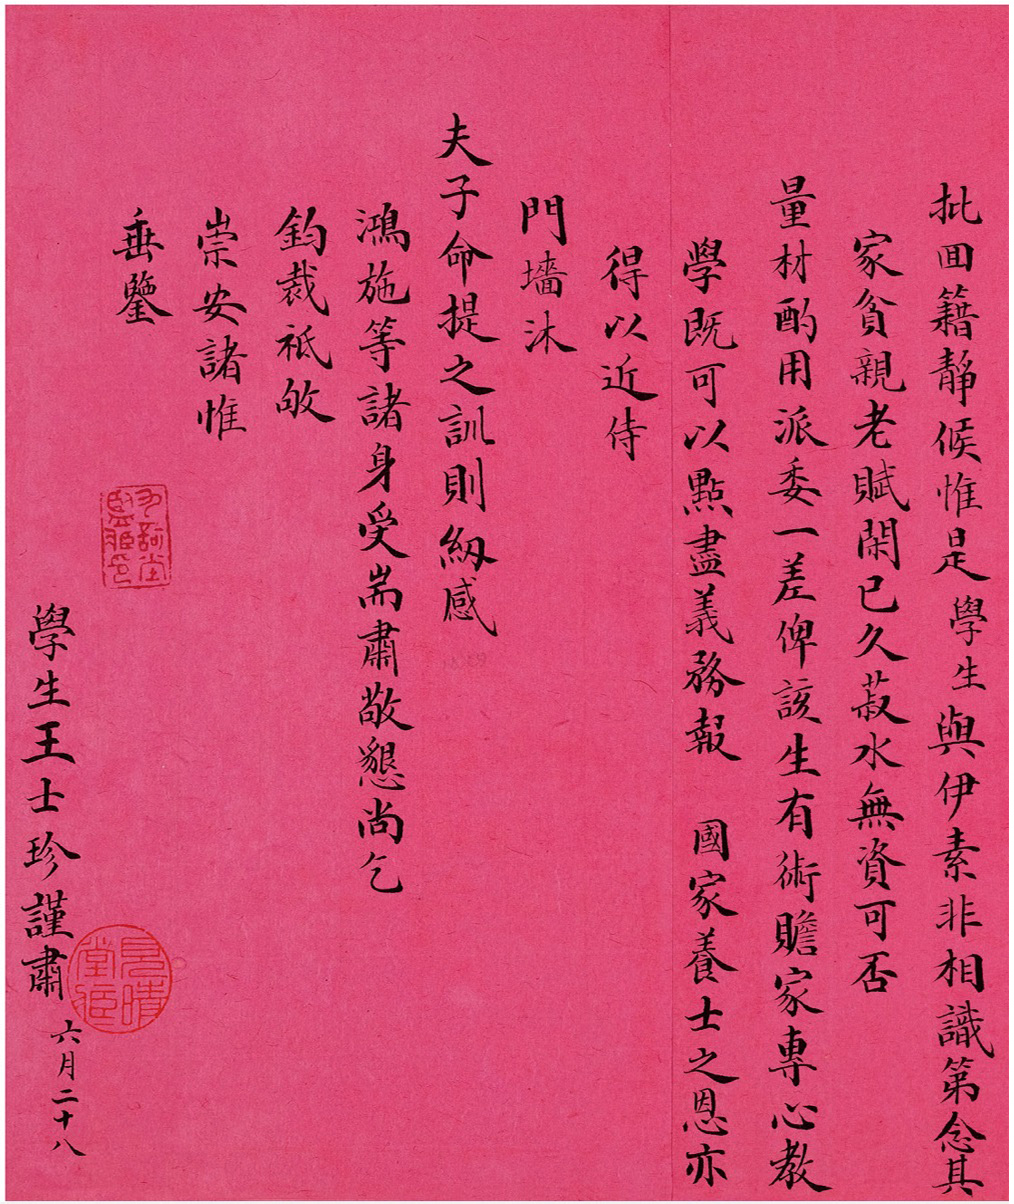 批回籍靜候惟是學生與伊素非相識第念其
家貧親老賦閑已久菽水無資可否
量材酌用派委一差俾該生有術贍家專心教
學既可以點盡義務報 國家養士之恩亦
得以近侍
門墻沐
夫子命提之訓則紉感
鴻施等諸身受耑肅敬懇尚乞
鈞裁祗敂
崇安諸惟
垂鑒
學生王士珍謹肅 六月二十八